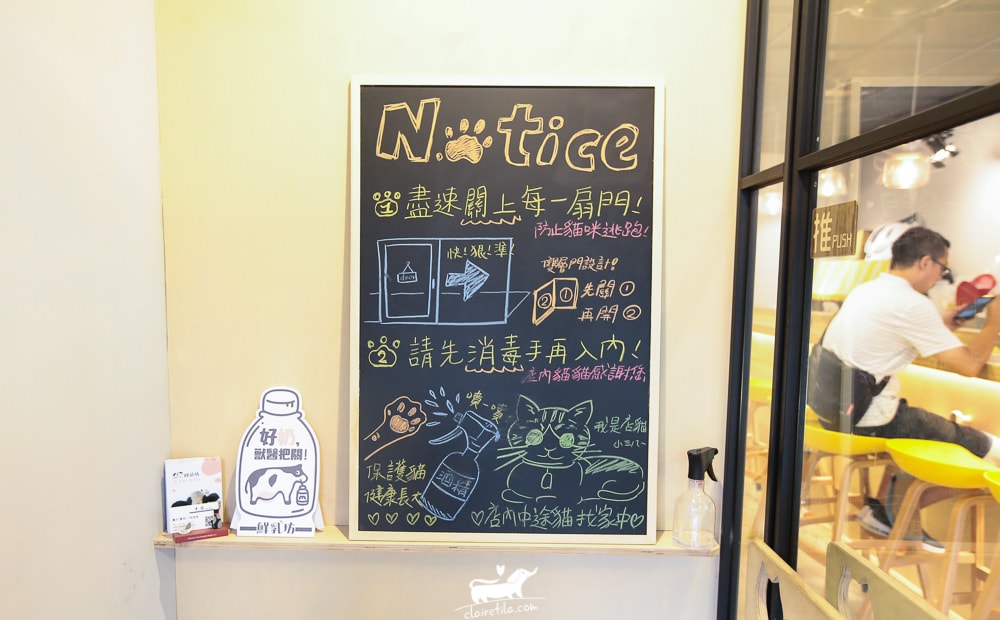 Notice
1 盡速關上每一扇門!
防止貓咪逃跑!
快!狠!準!
雙層門設計!
② ①
先關①
再開②
2 請先消毒手再入內!
店內貓貓感謝您
噴~噴
酒精
保護貓
健康長大
我是店貓
小三八~
♡店內中途貓找家中♡
好奶,
獸醫把關!
鮮乳坊
推 PUSH
clairetila.com